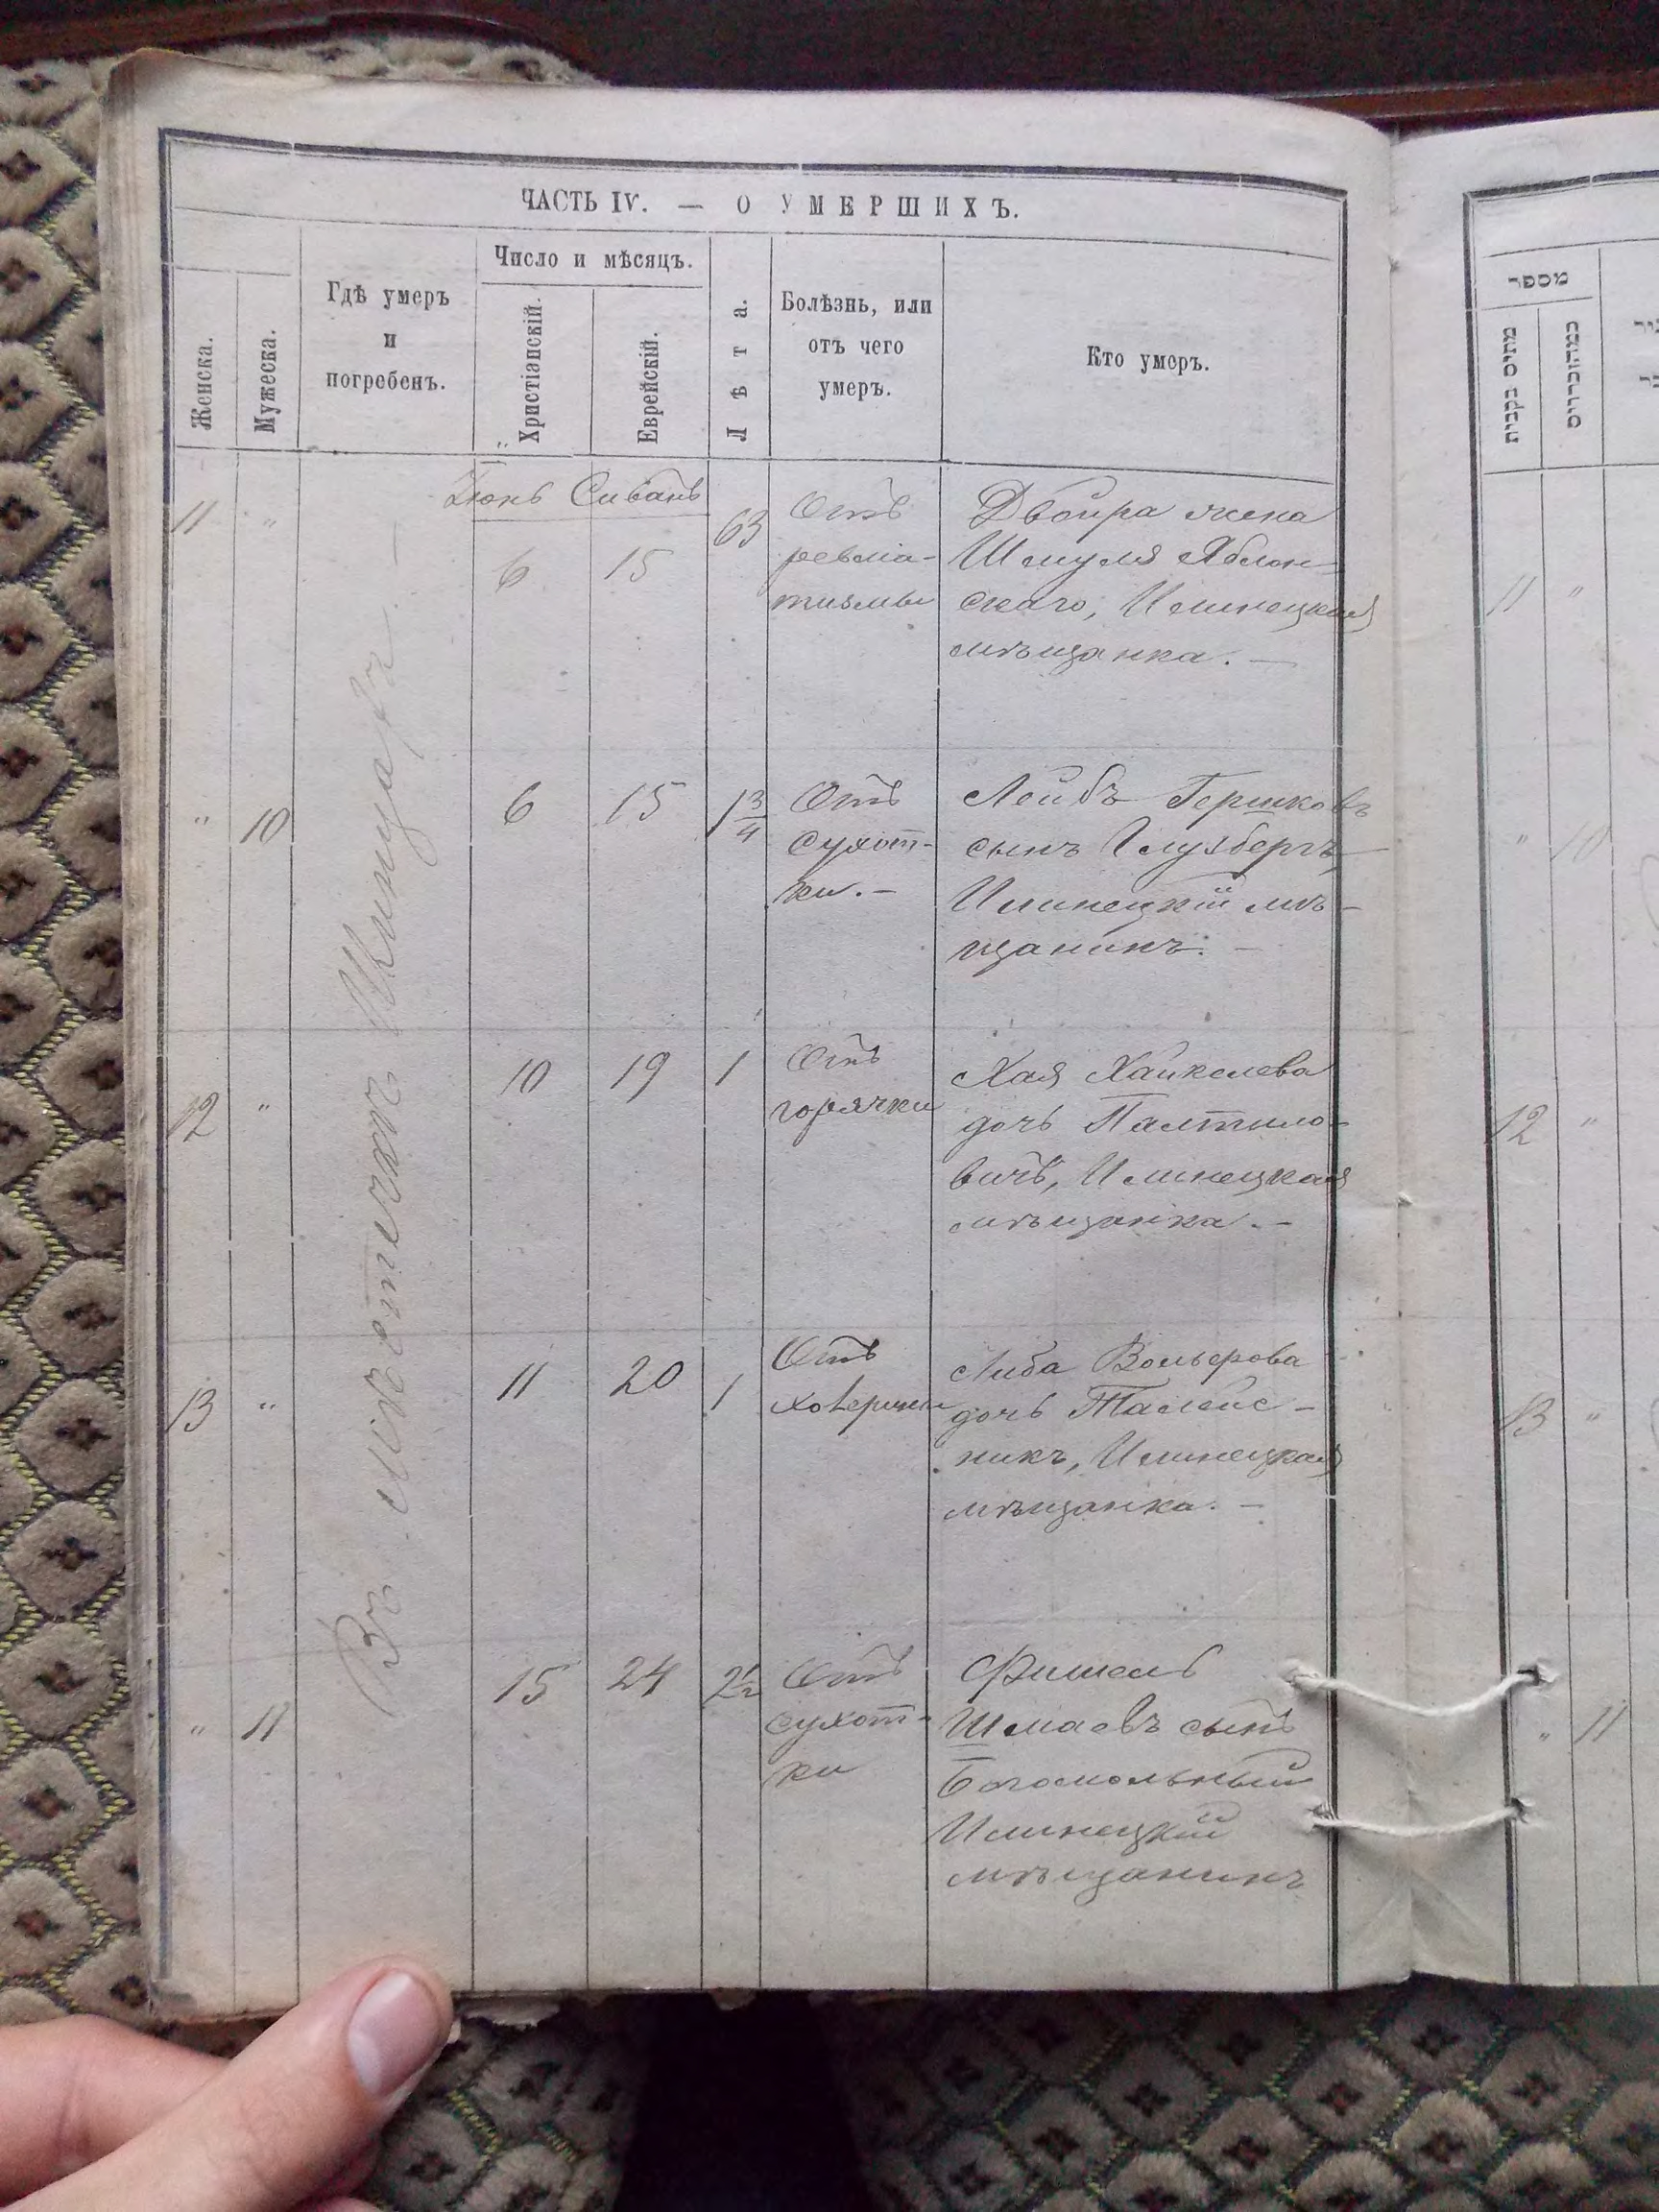 ЧАСТЬ IV. — О УМЕРШИХЪ.
Женска.
Мужеска.
Гдѣ умеръ
и
погребенъ.
Число и мѣсяцъ.
Христіанскій.
Еврейскій.
Лѣта.
Болѣзнь, или
отъ чего
умеръ.
Кто умеръ.
Въ мѣстечкѣ
Іюнь Сиванъ
11 " 6 15 63
Отъ
ревма-
тизмы
Двойра жена
Шмуля Яблон-
скаго, Илинецкая
мѣщанка. —
" 10 6 15 1 3/4
Отъ
сухот-
ки. —
Лейбъ Гершковъ
сынъ Глузбергъ,
Илинецкій мѣ-
щанинъ. —
12 " 10 19 1
Отъ
горячки
Хая Хайкелева
дочь Палтило-
вичъ, Илинецкая
мѣщанка. —
13 " 11 20 1
Отъ
Либа Вольфова
дочь Талейс-
никъ, Илинецкая
мѣщанка. —
" 11 15 24 2 1/2
Отъ
сухот-
ки
Фишель
Шмаевъ сынъ
Богомольный
Илинецкій
мѣщанинъ
מספר
11 "
" 10
12 "
13 "
" 11